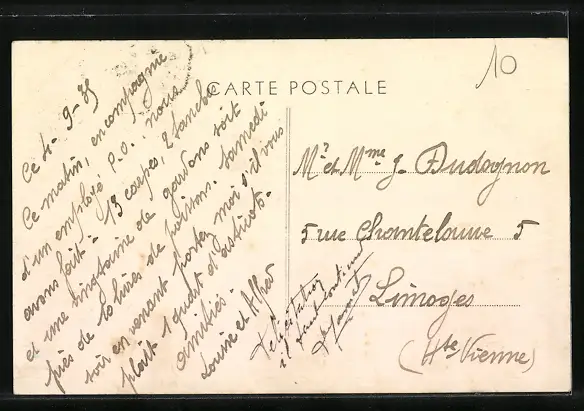 10
CARTE POSTALE
Ce 4-9-35
Ce matin, en compagnie
d'un employé P.O. nous
avons fait - 13 carpes, 2 tanches
et une vingtaine de gardons soit
près de 10 livres de poissons. Samedi
soir en venant portez moi s'il vous
plait 1 quart d'asticots.
Amitiés.
Louise et Alfred
Félicitation
il faut continuer
Mr et Mme J. Dudognon
5 rue Chantelouve 5
Limoges
(Hte Vienne)